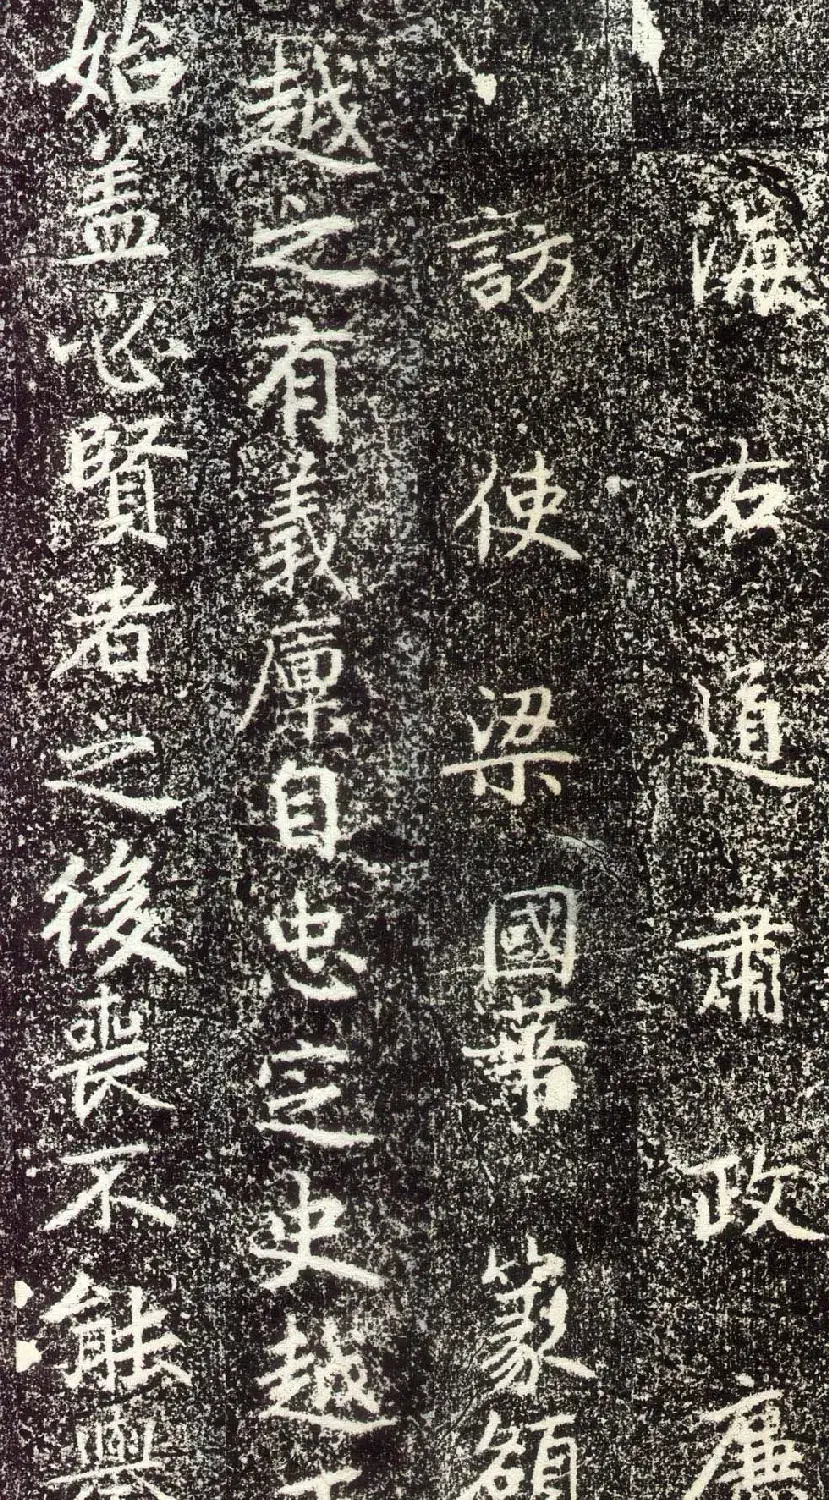 海右道肅政廉
訪使梁國華篆額
越之有義廩自忠定史越王
始盖必賢者之後喪不能舉